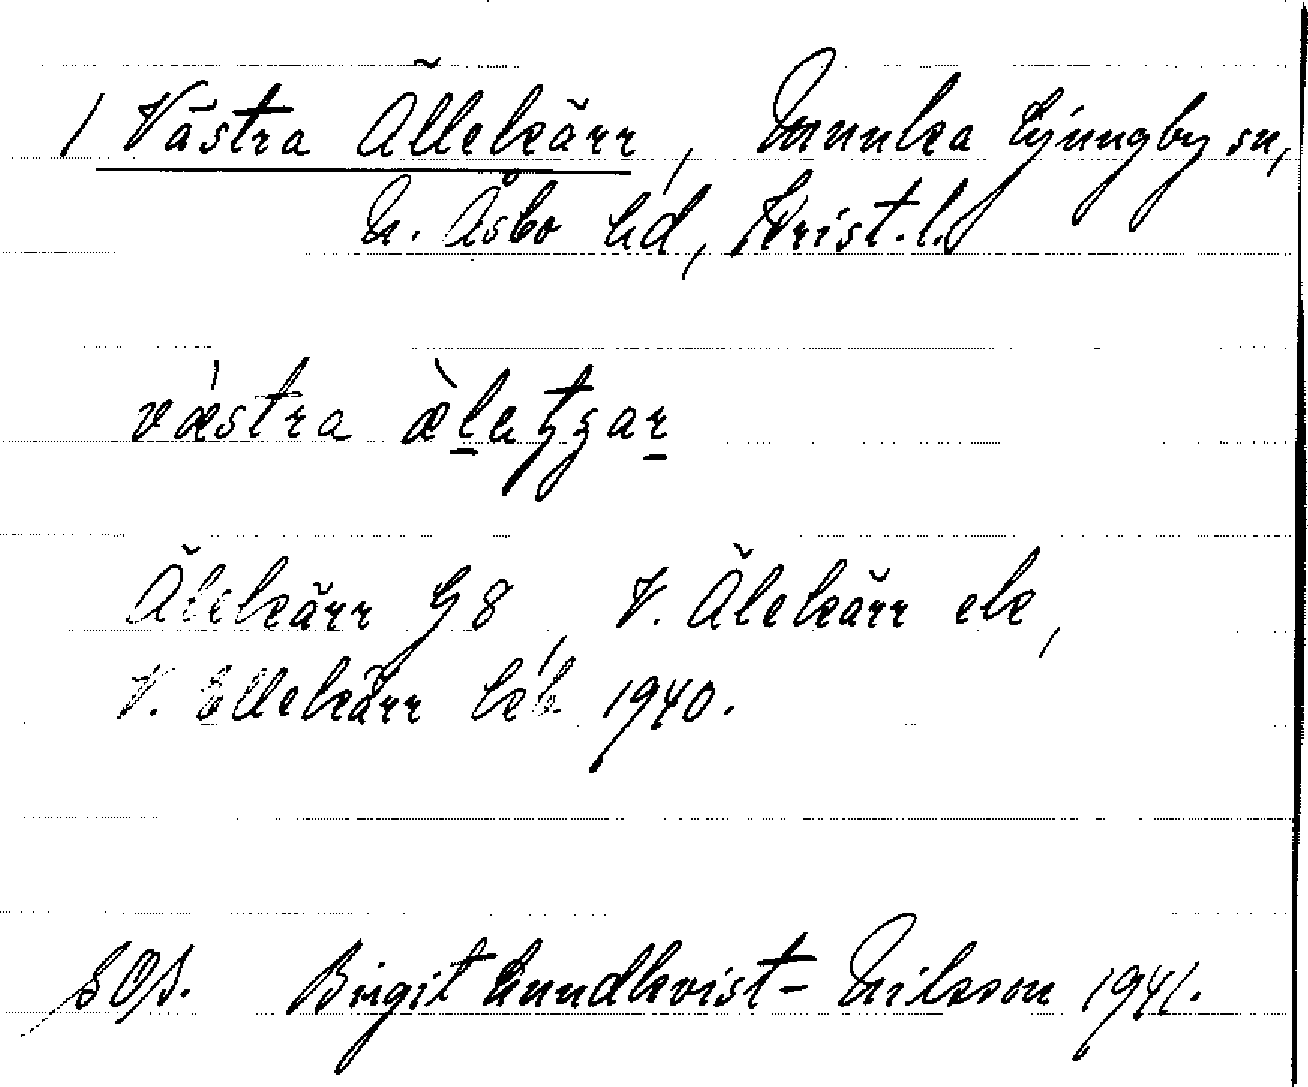 / Västra Ällekärr, Munka Ljungby sn,
N. Åsbo hd, Krist. l.
væ̀stra æ̀lətʒar
Älekärr G 8, V. Älekärr ek,
V. Ellekärr héb 1940.
SOS. Birgit Lundkvist-Nilsson 1941.